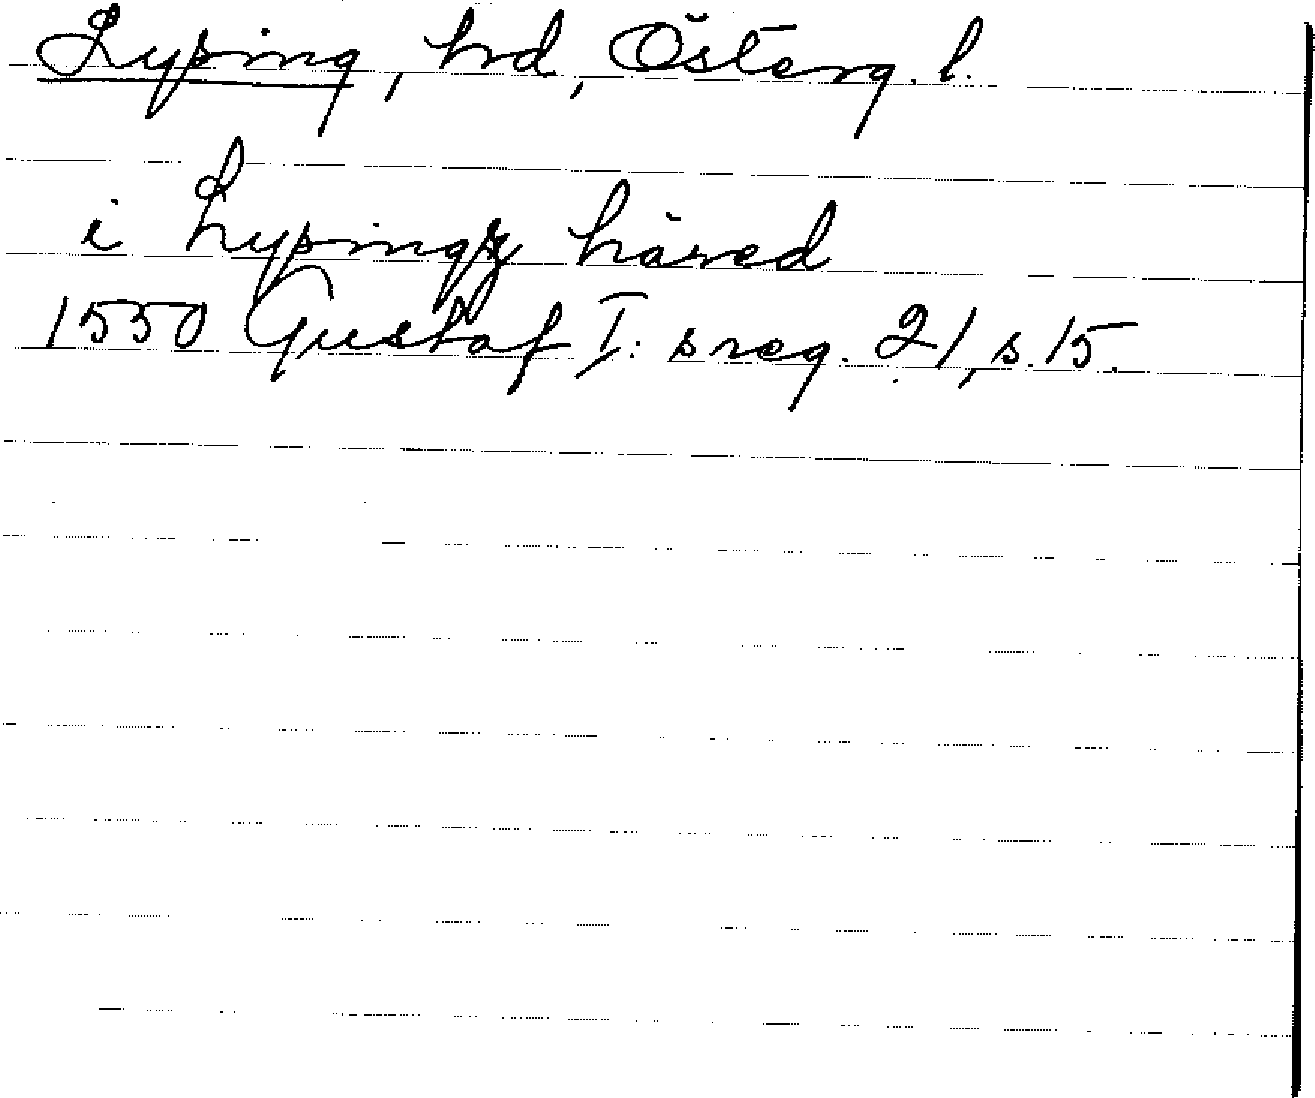 Lyping, hd, Österg. l.
i Lypingz häred
1550 Gustaf I: s reg. 21, s. 15.